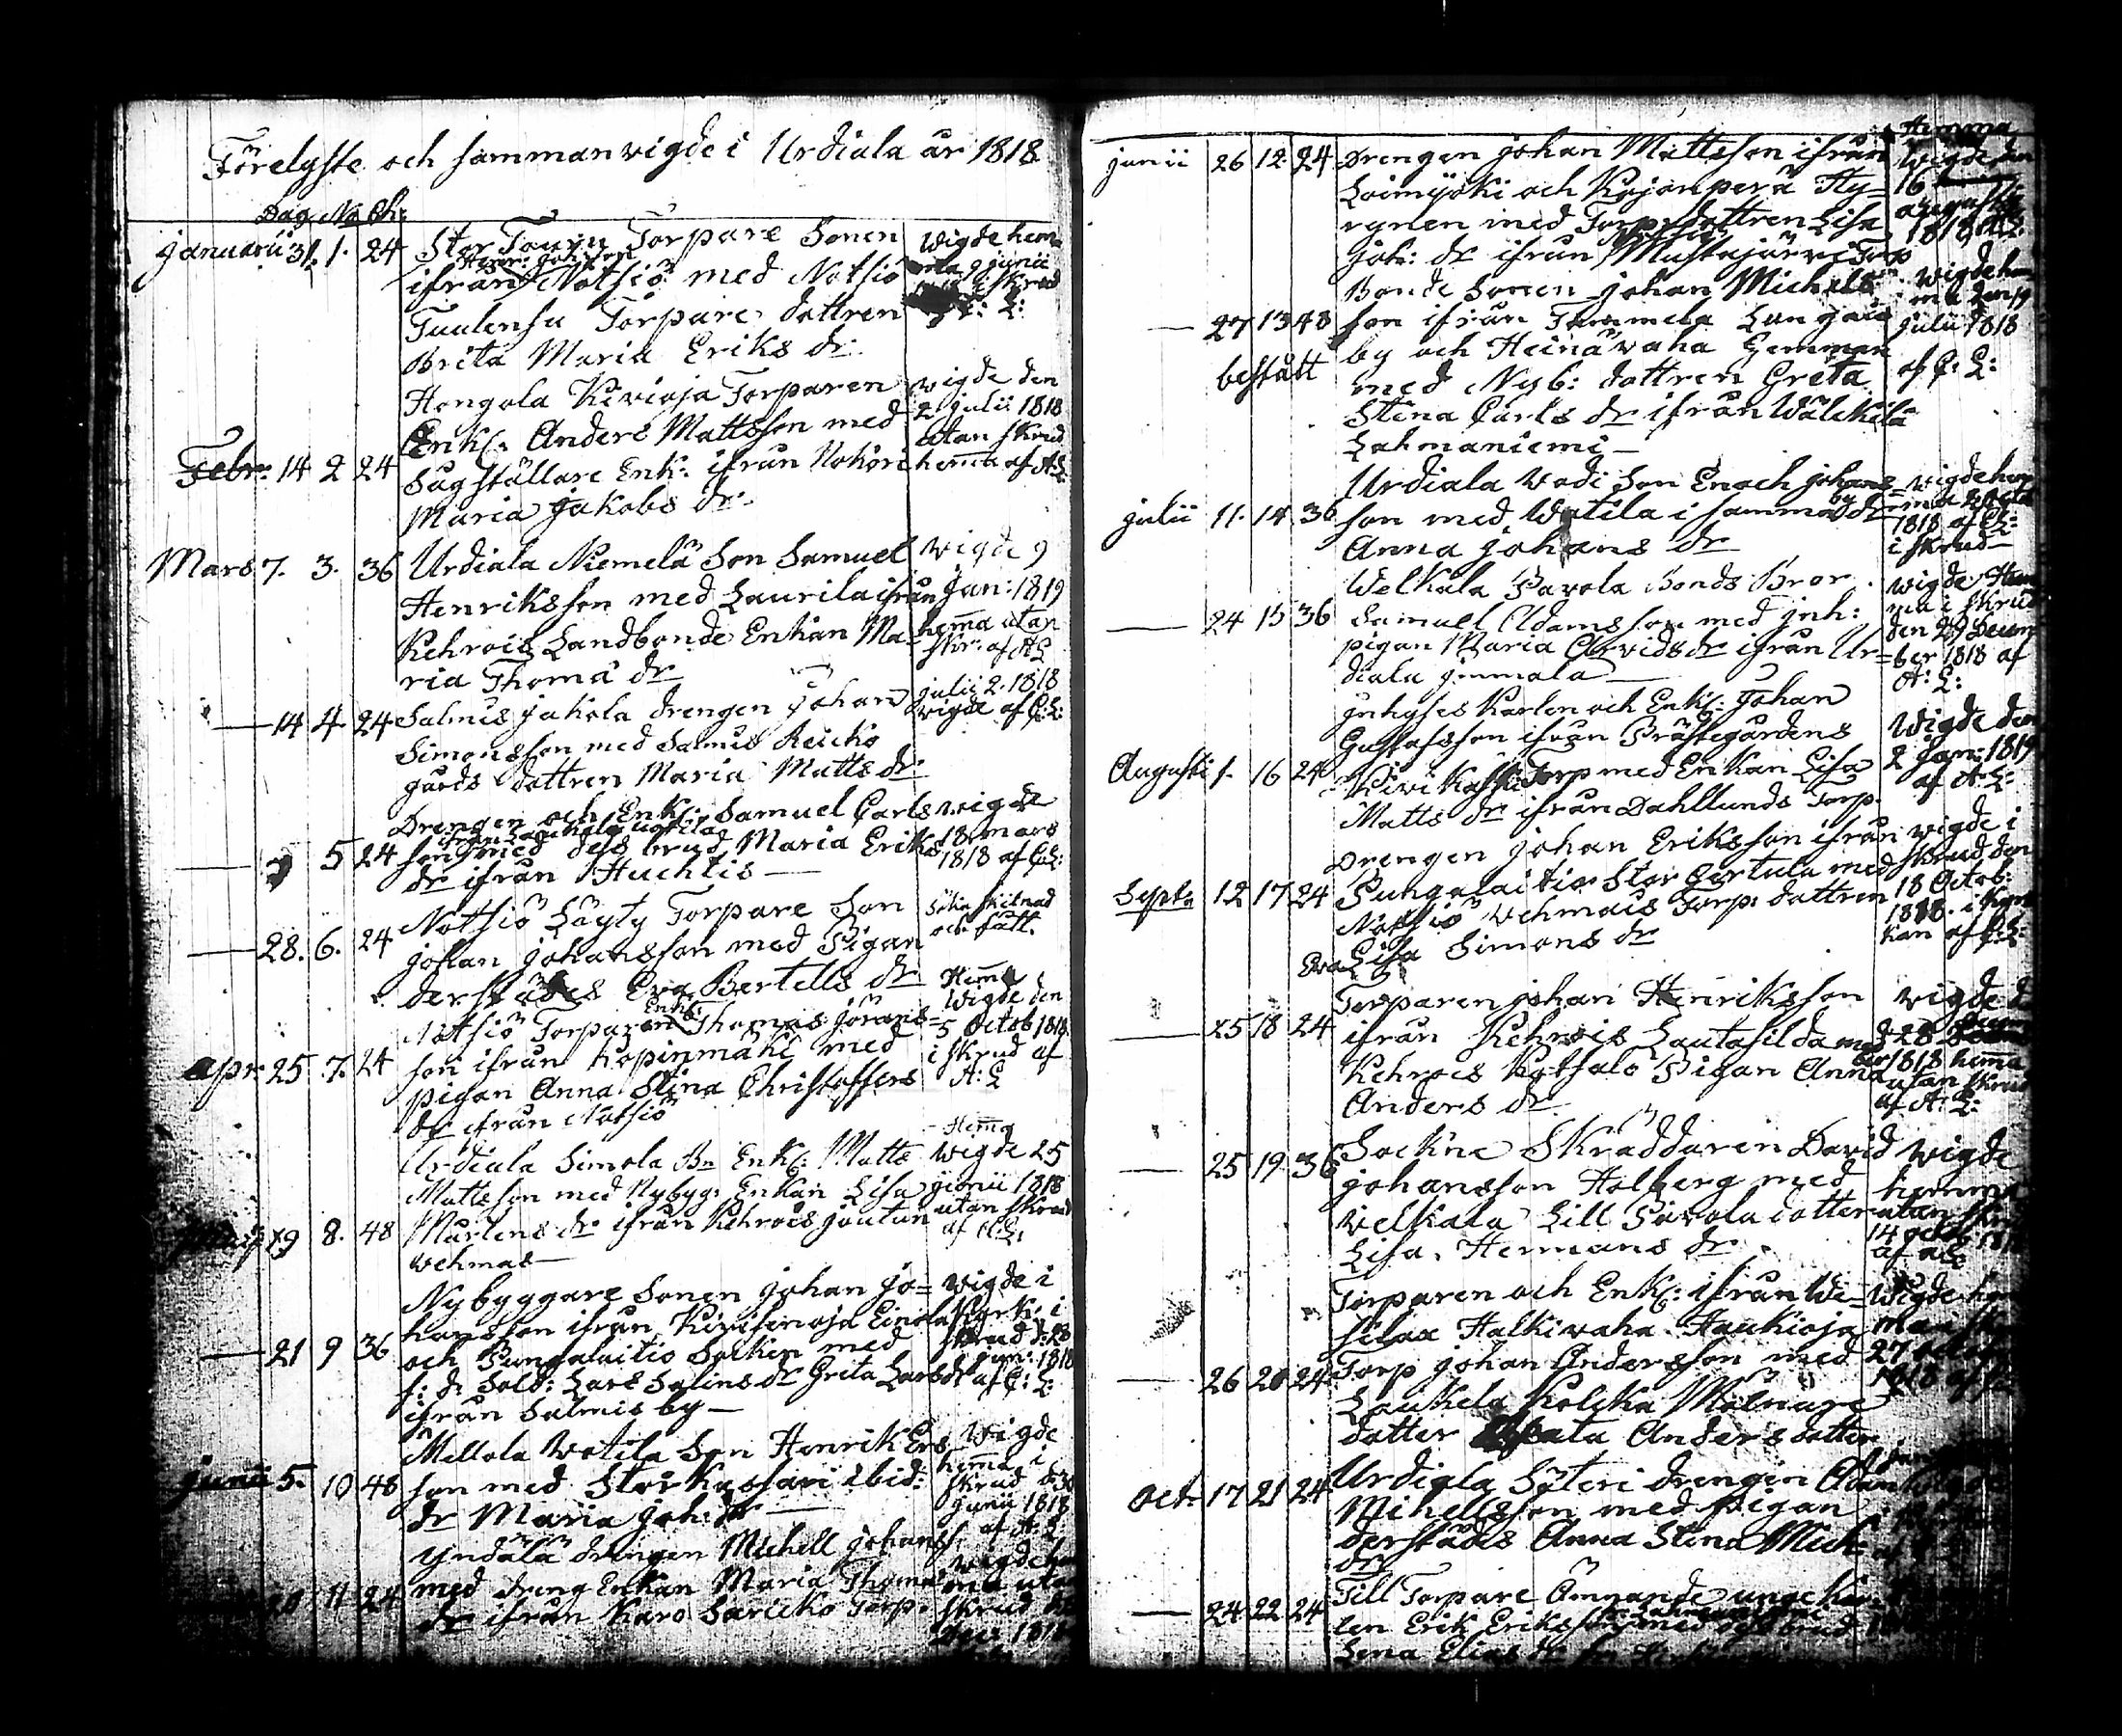 Förelyste och sammanvigde i Urdiala år 1818
Dag. No Ch:
Januarii 31. 1. 24 Stor Tourn Torpare Sonen
Henr: Johsson
ifrån Notsiö med Notsiö
Tuulensu Torpare dottren
Brita Maria Eriks dr
Wigde hem
ma 9 junii
Hongola Kivioja Torparen
Enkl: Anders Mattsson med
Febr: 14 2 24 Sågställare Enk: ifrån Nokori
Maria Jakobs dr
vigde den
2 julii 1818
utan skrud
hemma af A:L:
Mars 7. 3. 36 Urdiala Niemelä Son Samuel
Henriksson med Laurila ifrån
Kehrois Landbonde Enkan Ma-
ria Thoma dr
vigde 9
Jan: 1819
hema utan
skr: af A:L
14 4 24 Salmis Jakola drengen Johan
Simonsson med Salmis Reicko
gårds dottren Maria Matts dr
julii 2. 1818
vigde af C:L:
Drengen och Enkl: Samuel Carls
5 24 son med dess brud Maria Eriks
dr ifrån Huchtis
vigde
18 mars
1818 af C:L:
Notsiö Läyty Torpare Son
28. 6. 24 Johan Johansson med Pigan
derstädes Eva Bertells dr
Enkl:
Notsiö Torparen Thomas Jörans=
Apr: 25 7. 24 son ifrån Kopinmäki med
pigan Anna Stina Christoffers
dr ifrån Notsiö
Hema
Wigde den
5 Octob 1818
i skrud af
A: L
Urdiala Simola Bn Enkl: Matts
Mattsson med Nybyg: Enkan Lisa
19 8. 48 Mårtens dr ifrån Kehrois Joutun
vehmas
Hema
Wigde 25
junii 1818
utan skrud
af A:L:
Nybyggare Sonen Johan Jo=
hansson ifrån Kivisenoja Einola
21 9 36 och Pungalaitio Socken med
f: d: Sold: Lars Solins dr Greta Larsdr
ifrån Salmis by
vigde i
Kyrk: i
skrud d: 28
jun: 1818
af C: L:
Mellola Votila Son Henrik Ers
Junii 5. 10 48 son med Stor Kassari ibid:
dr Maria Joh: dr
Wigde
hema i
skrud d: 30
junii 1818
af A: L:
Yndälä drengen Michell Johanss:
11 24 med dreng Enkan Maria Thomas
dr ifrån Karo Saricko Torp:
vigde hem
ma utan
skrud
Junii 26 12. 24 Drengen Johan Mattsson ifrån
Loimijoki och Kojonperä Hy-
rynen med Torp: dottren Lisa
Joh: dr ifrån Mustajärvi Torp
Hemma
Wigde den
16
augusti
1818 A:L:
Bonde Sonen Johan Michels
27 13 48 son ifrån Tammela Lungais
bestått
by och Heinävaha Hemman
med Nyb: dottren Greta
Stina Carls dr ifrån Wälckilä
Lahmaniemi
Wigde hem
ma den 19
julii 1818
af C: L:
Urdiala Vodi Son Enoch Johans=
Julii 11. 14 36 son med Watila i samma by dr
Anna Johans dr
vigde hem
1818 af C:L:
i skrud
Welkala Pavola Bonds Bror
24 15 36 Samuel Adamsson med inh:
pigan Maria Arvidsdr ifrån Ur=
diala Jmmala
vigde Hem
ma i skrud
den 29 Decem
ber 1818 af
A: L:
Inhyses Karlen och Enkl: Johan
Gustafsson ifrån Prästegårdens
Augusti 1. 16 24 Kivikassu Torp med Enkan Lisa
Matts dr ifrån Dahllunds Torp.
Wigde den
2 Jan: 1819
af A: L:
Drengen Johan Eriksson ifrån
Septe 12 17 24 Pungalaitio Stor Gertula med
Notsiö Vehmais Torp: dottren
Eva Lisa Simons dr
vigde i
skrud den
18 Octob:
1818. i Kyr
kan af C:L:
Torparen Johan Henriksson
25 18 24 ifrån Kehrois Lautasilda med
Kehrois Kytsalo Pigan Anna
Anders dr
vigde d
d 28
1818 hema
utan skrud
af A: L:
Sockne Skräddaren David
25 19 36 Johansson Holberg med
Velkala Lill Pavola dotter
Lisa Hermans dr
Wigde
hemma
utan skrud
14 octob 1818
af A:L
Torparen och Enkl: ifrån We=
silax Halkivaha Haukioja
26 20 24 Torp Johan Andersson med
Laukela Kolcka Mölnare
dotter Anders dotter
Wigde hem
27
1818
Oct. 17 21 24 Urdiala Säteri drengen Adam
Michellsson med pigan
derstädes Anna Stina Mich:
dr
24 22 24 Till Torpare Ämnande unge kar
len Erik Eriksson med dess brud
Lena Elias dr